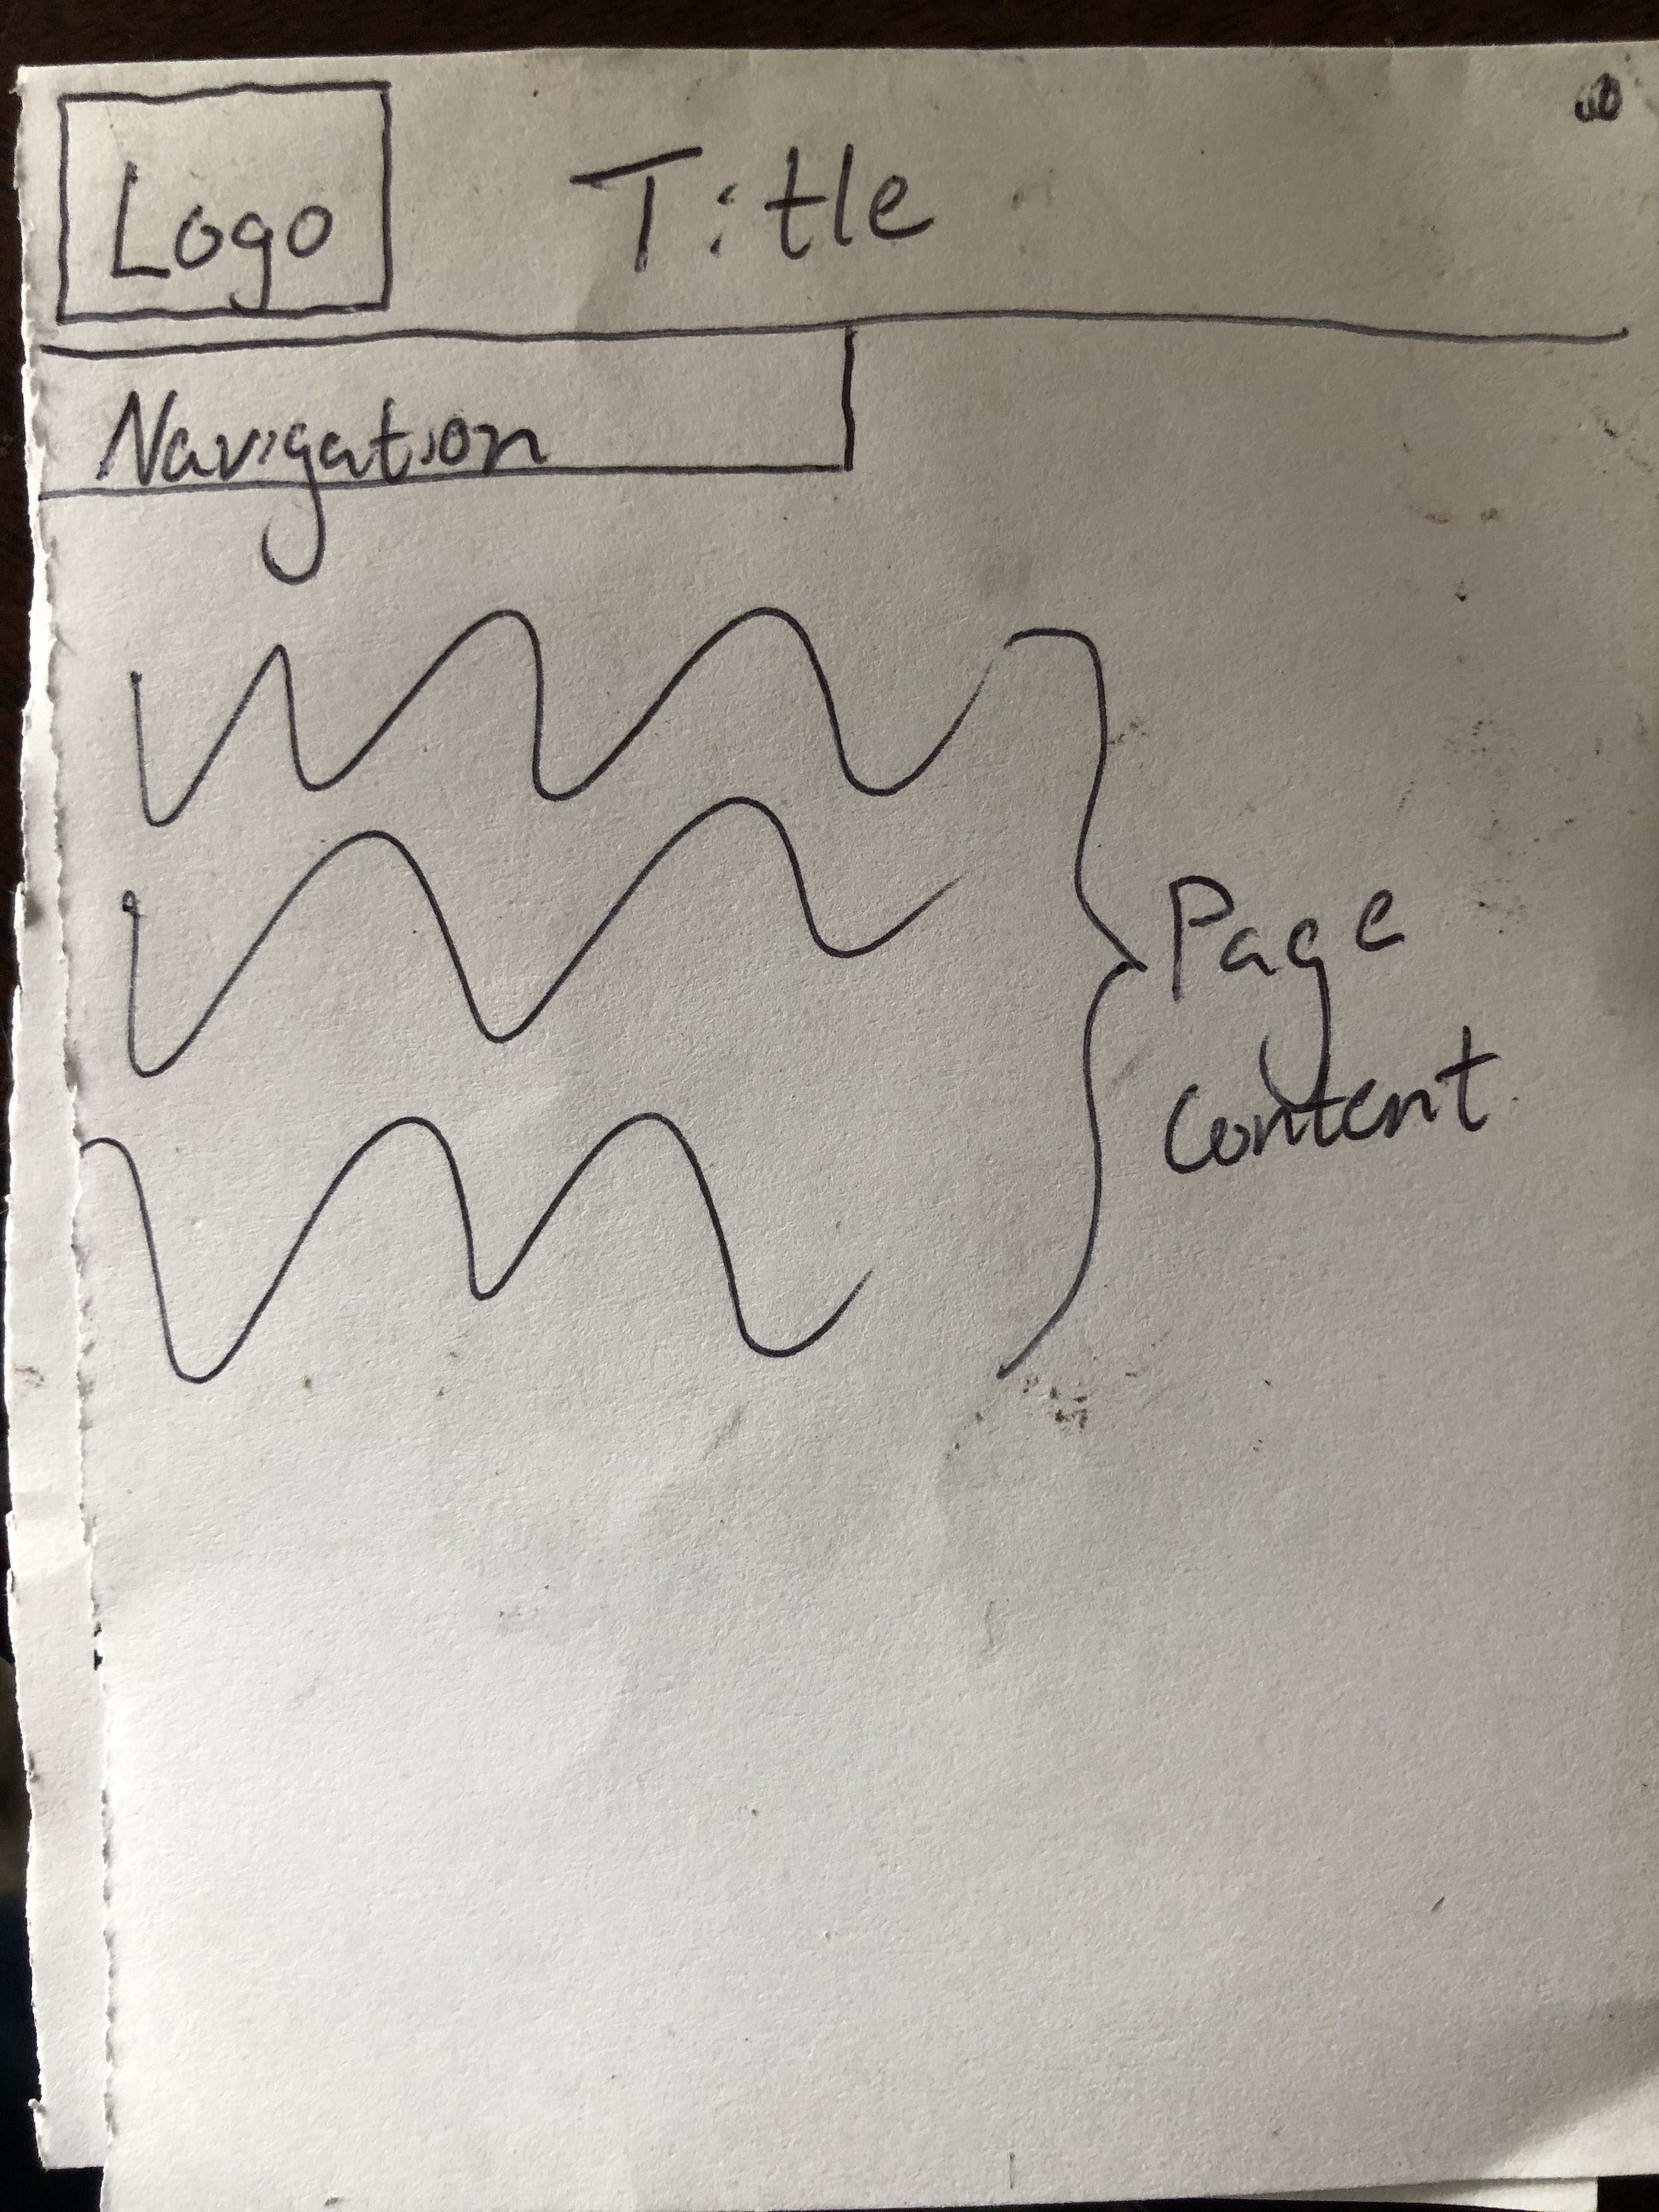 Logo
Title
Navigation
Page
Content